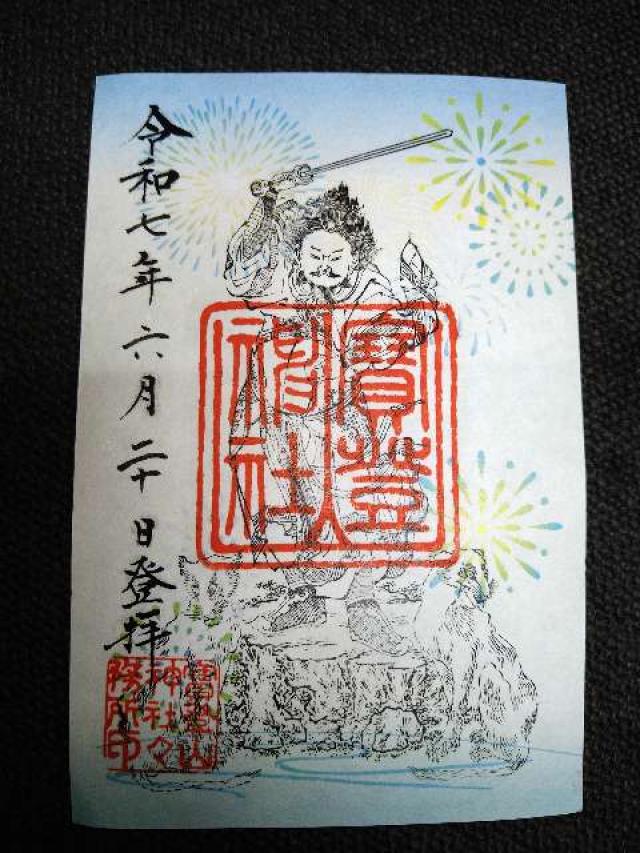 令和七年六月二十日登拝
寶登
神社
寶登山
神社々
務所印